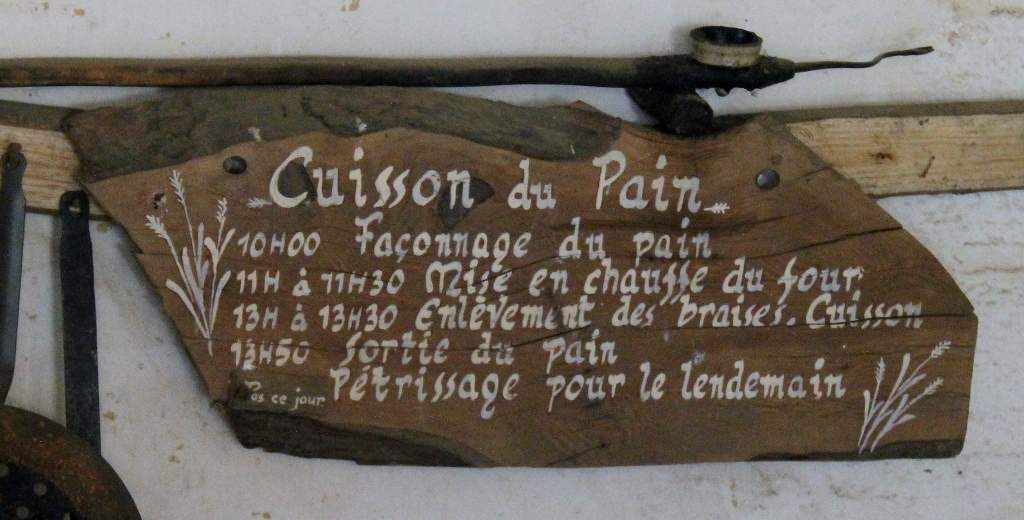 Cuisson du Pain
10H00 Façonnage du pain
11H à 11H30 Mise en chauffe du four
13H à 13H30 Enlèvement des braises. Cuisson
13H50 Sortie du pain
Pas ce jour Pétrissage pour le lendemain